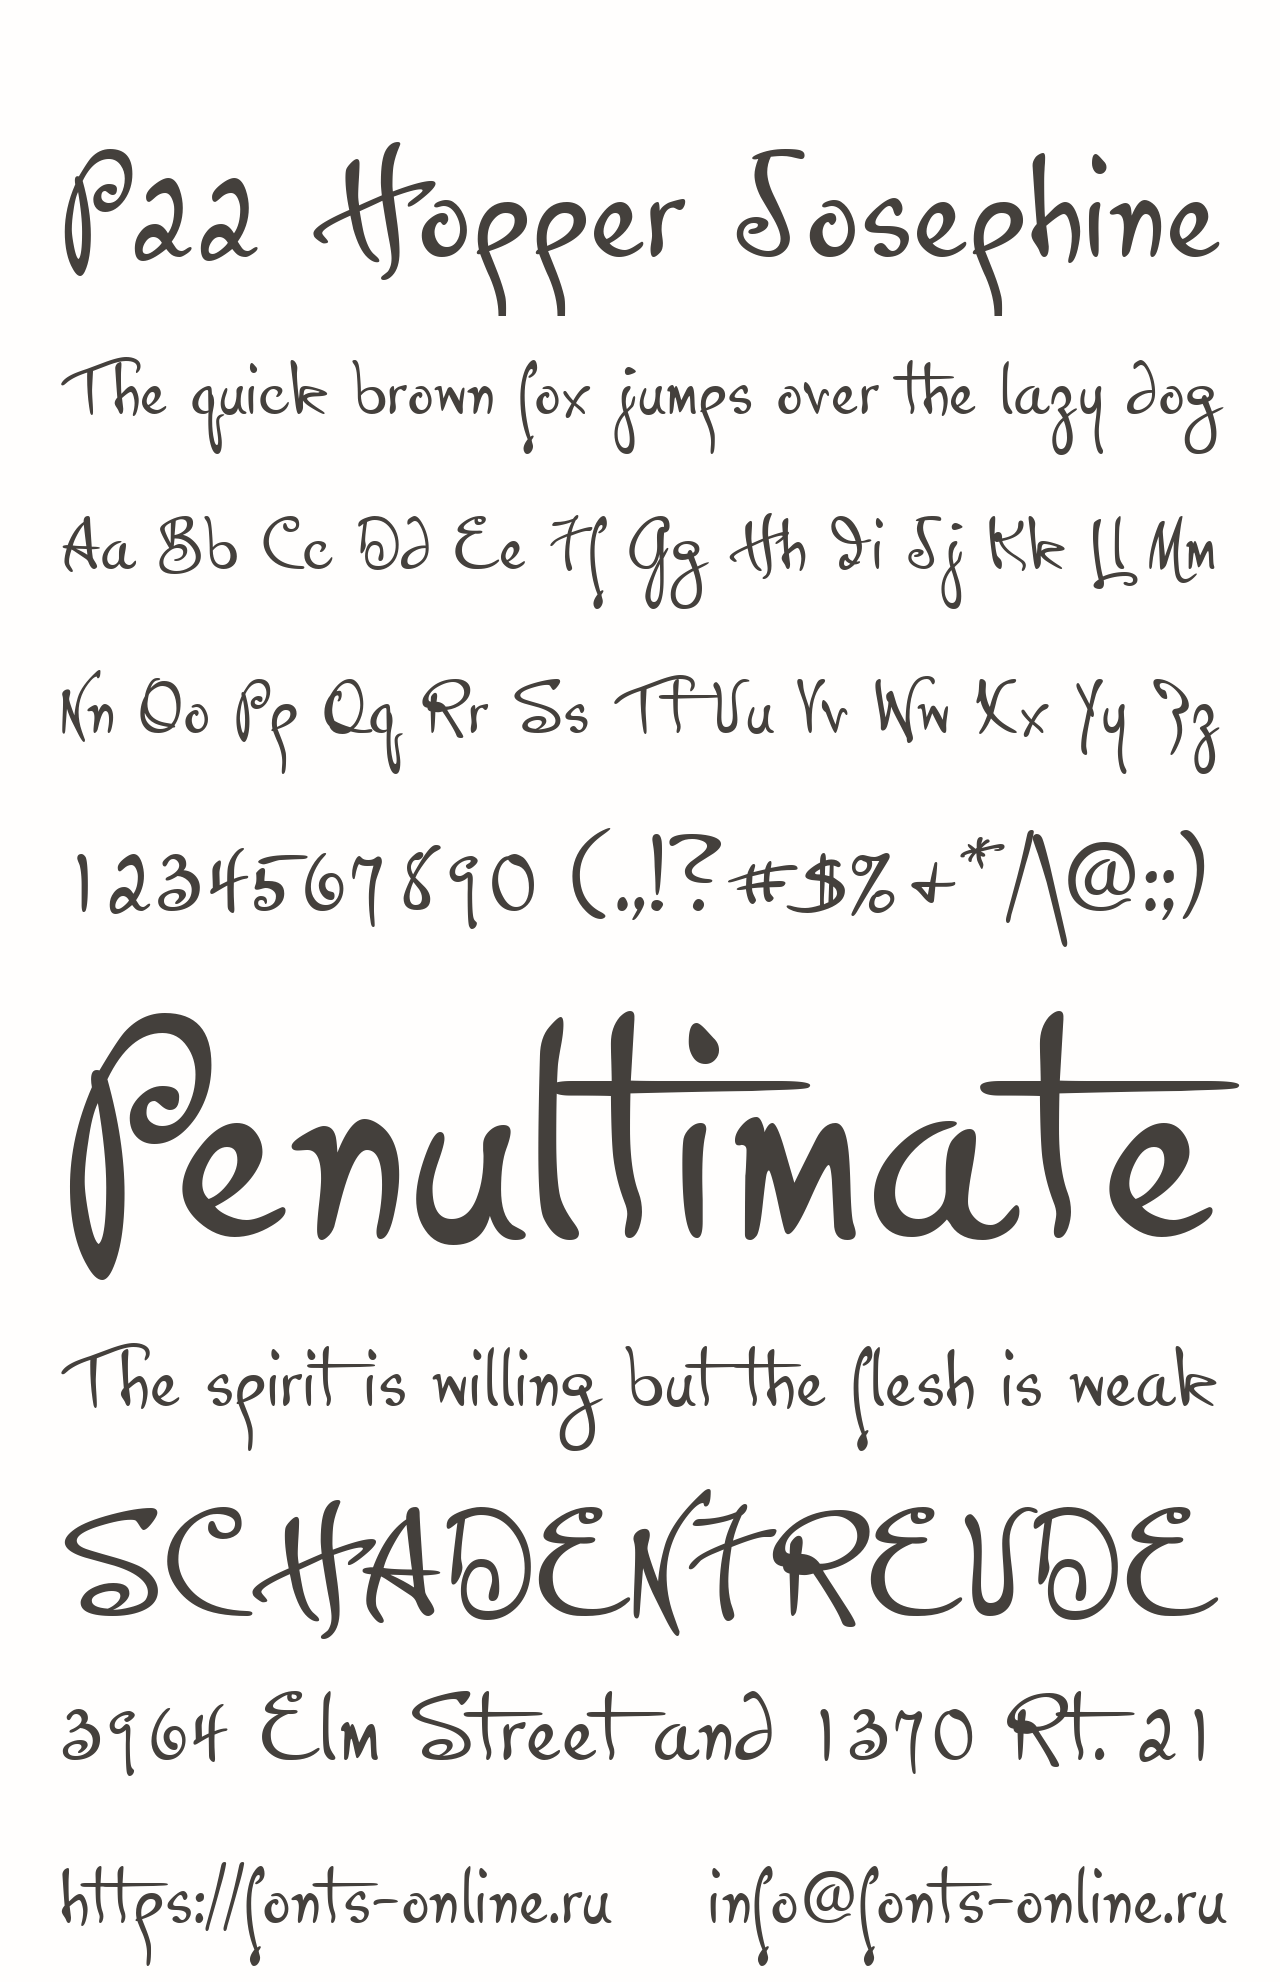 P22 Hopper Josephine
The quick brown fox jumps over the lazy dog
Aa Bb Cc Dd Ee Ff Gg Hh Ii Jj Kk Ll Mm
Nn Oo Pp Qq Rr Ss Tt Uu Vv Ww Xx Yy Zz
1234567890 (.,!?#$%+*/\@:;)
Penultimate
The spirit is willing but the flesh is weak
SCHADENFREUDE
3964 Elm Street and 1370 Rt. 21
https://fonts-online.ru info@fonts-online.ru